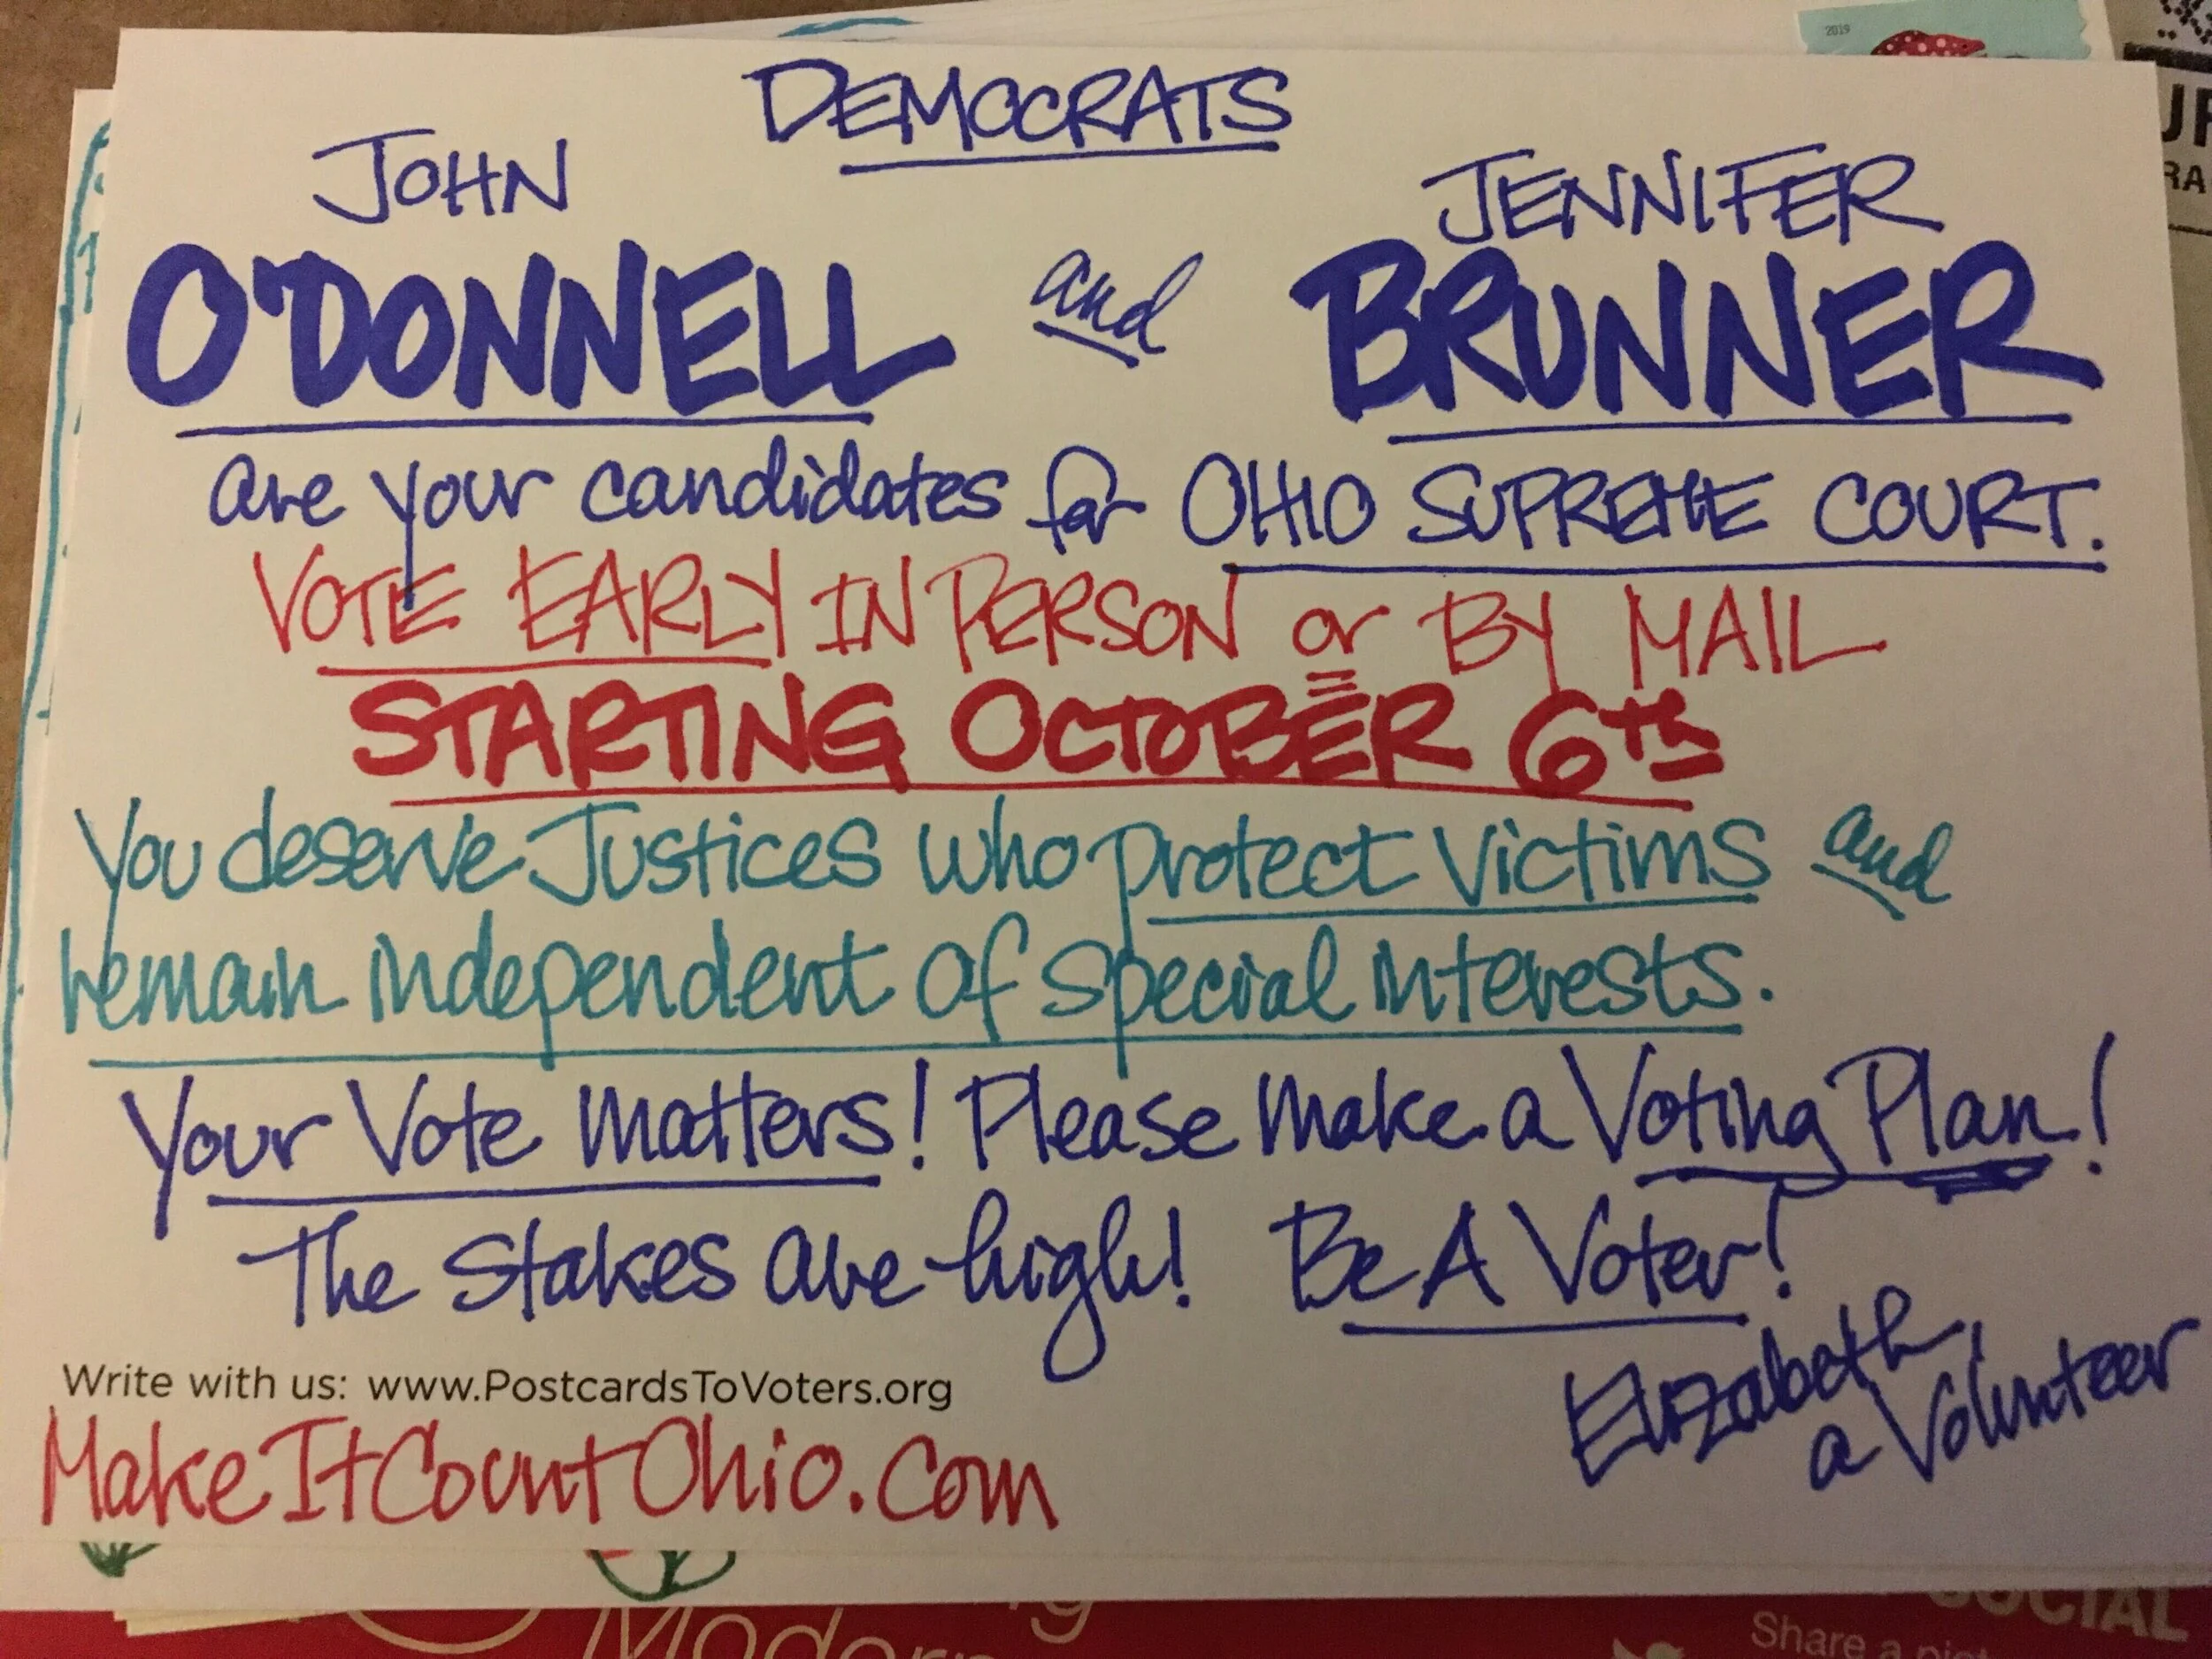 2019
DEMOCRATS
JOHN
O'DONNELL and JENNIFER BRUNNER
are your candidates for OHIO SUPREME COURT.
VOTE EARLY IN PERSON or BY MAIL
STARTING OCTOBER 6th
You deserve Justices who protect victims and
remain independent of special interests.
Your Vote Matters! Please make a Voting Plan!
The Stakes are high! Be A Voter!
Elizabeth,
a Volunteer
Write with us: www.PostcardsToVoters.org
MakeItCountOhio.com
SOCIAL
Share a